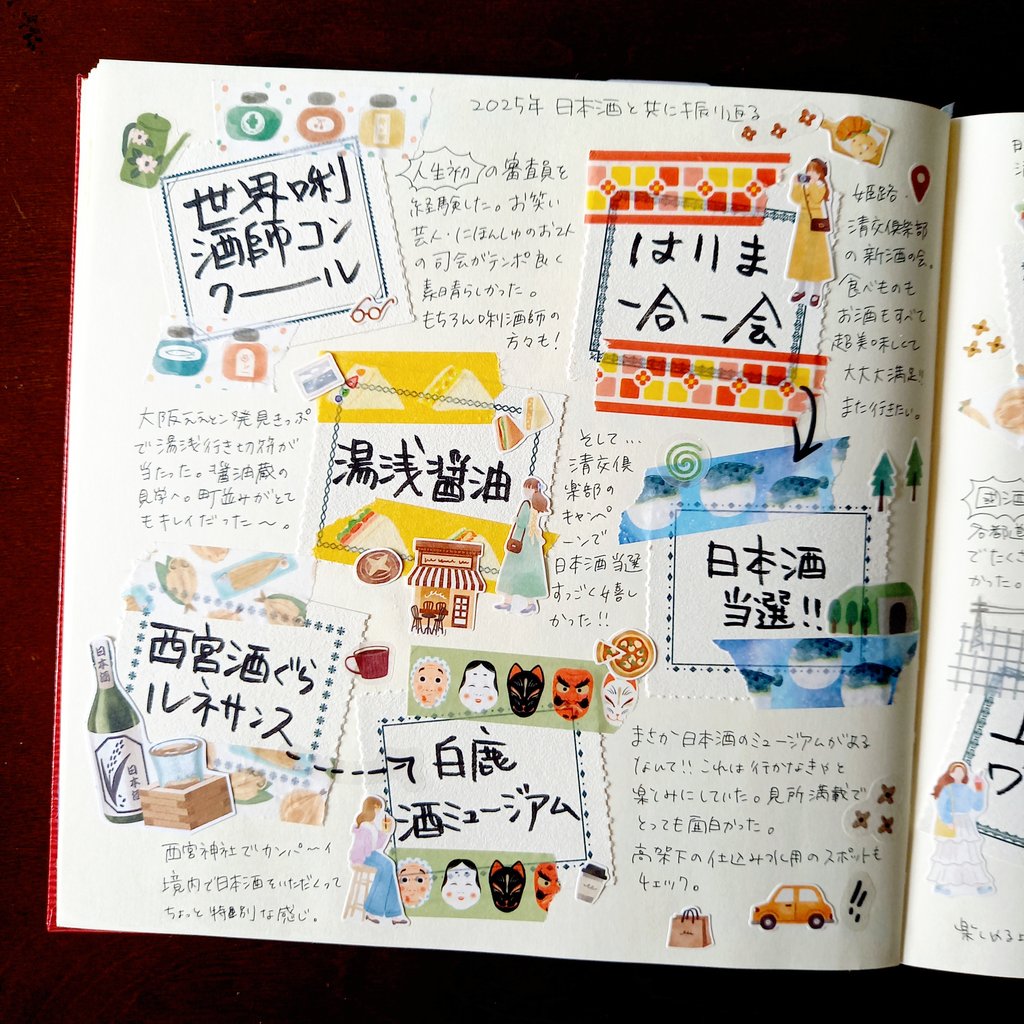 2025年 日本酒と共に振り返る
世界唎
酒師コン
クール
人生初 の審査員を
経験した。お笑い
芸人・にほんしゅのお2人
の司会がテンポ良く
素晴らしかった。
もちろん唎酒師の
方々も!
はりま
一合一会
姫路
清交倶楽部
の新酒の会。
食べものも
お酒もすべて
超美味しくて
大大大満足!!
また行きたい。
大阪ええとこ発見きっぷ
で湯浅行き切符が
当たった。醤油蔵の
見学へ。町並みがとて
もキレイだった〜。
湯浅醤油
そして…
清交倶
楽部の
キャンペ
ーンで
日本酒当選
すっごく嬉し
かった!!
日本酒
当選!!
西宮酒ぐら
ルネサンス
日本酒
日本酒
西宮神社でカンパーイ
境内で日本酒をいただくって
ちょっと特別な感じ。
白鹿
酒ミュージアム
まさか日本酒のミュージアムがある
なんて!! これは行かなきゃと
楽しみにしていた。見所満載で
とっても面白かった。
高架下の仕込み水用のスポットも
チェック。
!!
各都道
でたくさ
かった。
楽しめる